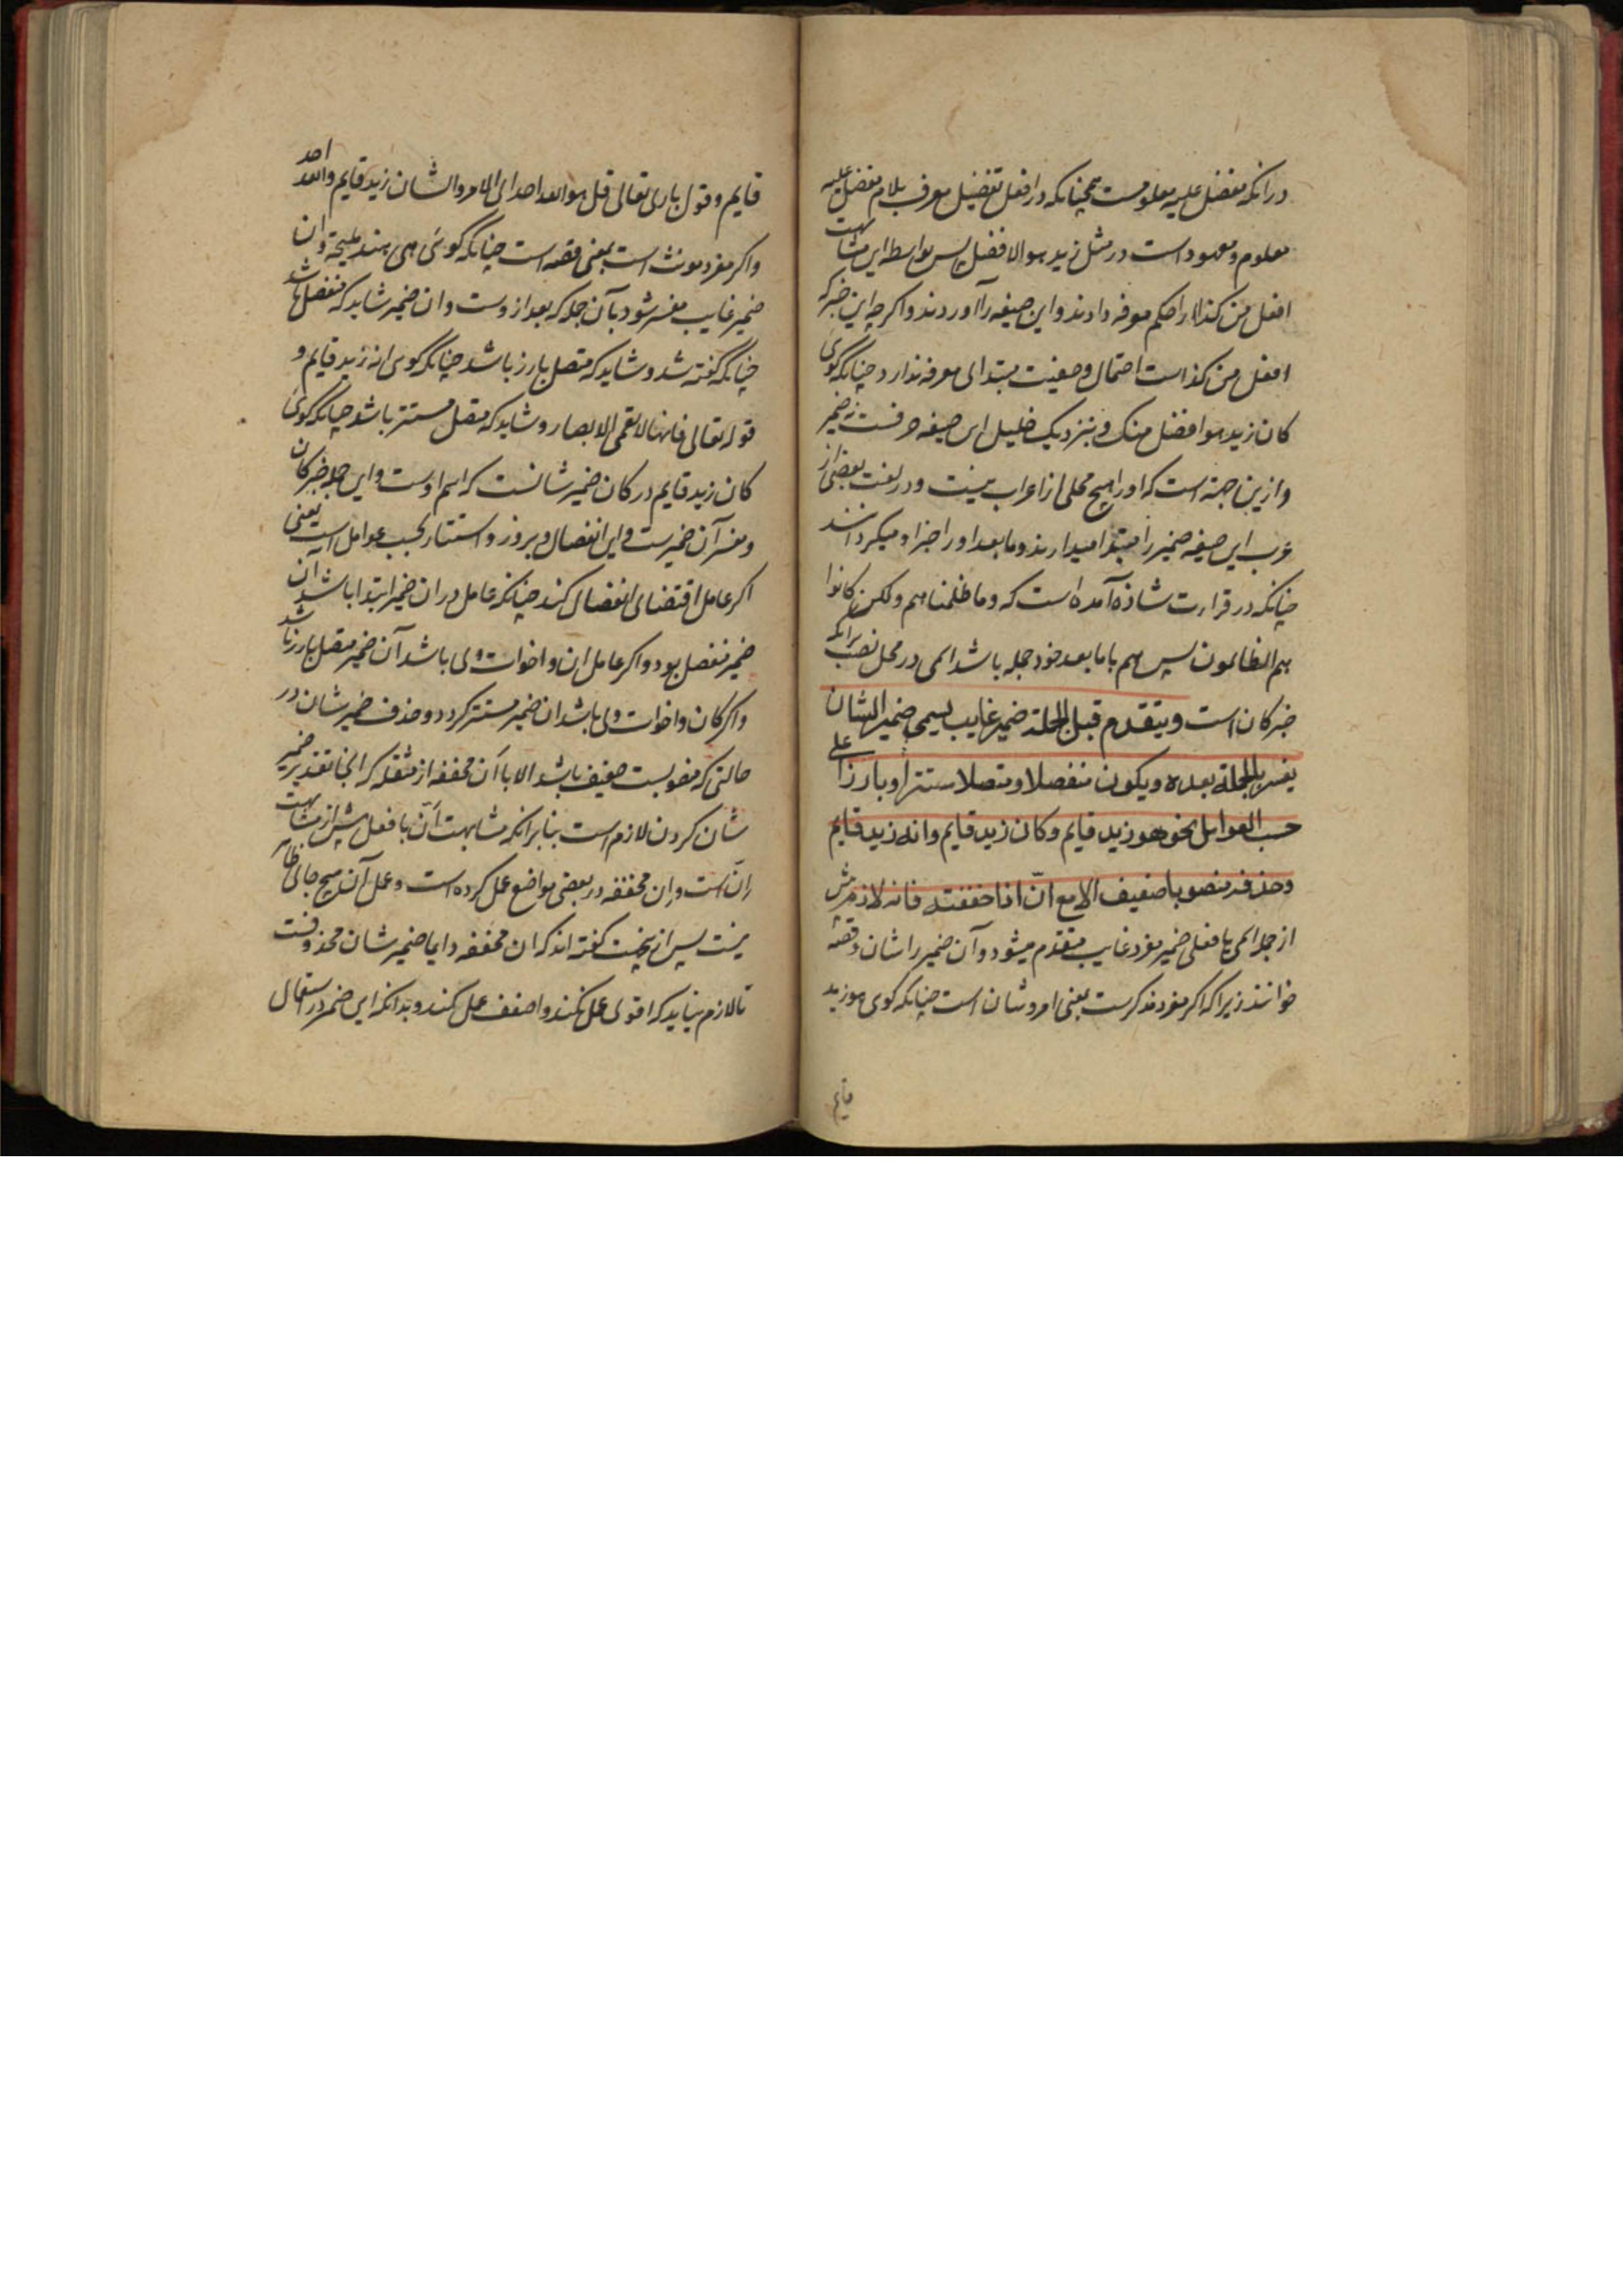 در انکه مفضل علیه معلومست همچنانکه در افعل تفضیل معرف بلام مفضل علیه
معلوم و معهود است در مثل زید هو الافضل پس بواسطه این مشابهت
افعل من کذا را حکم معرفه دادند و این صیغه را آوردند و اکر چه این خبر که
افعل من کذاست احتمال وصفیت مبتدای معرفه ندارد چنانکه کوی
کان زید هو افضل منک و بنزدیک خلیل این صیغه حرفست نه ضمیر
و ازین جهته است که او را هیچ محلی از اعراب نیست و در لغت بعضی از
عرب این صیغه ضمیر را مبتدا میدارند و ما بعد او را خبر او میکردانند
چنانکه در قرارت شاذه آمده است که وما ظلمناهم ولکن کانوا
هم الظالمون پس هم با ما بعد خود جمله باشد اسمی در محل نصب برانکه
خبر کان است ویتقدم قبل الجملة ضمیر غایب یسمی ضمیر الشان
یفسر بالجملة بعده ویکون منفصلا ومتصلا مستترا وبارزا علی
حسب العوامل نحو هو زید قایم وکان زید قایم وانه زید قایم
وحذفه منصوبا ضعیف الا مع انّ اذا خففت فانه لازم پیش
از جمله اسمی یا فعلی ضمیر مفرد غایب متقدم میشود و آن ضمیر را شان و قصه
خوانند زیرا که اکر مفرد مذکرست بمعنی امر و شان است چنانکه کوی هو زید
قایم
قایم و قول باری تعالی قل هو الله احد ای الامر والشان زید قایم والله احد
و اکر مفرد مونث است بمعنی قصه است چنانکه کوئی هی هند ملیحة و ان
ضمیر غایب مفسر شود بآن جمله که بعد ازوست و ان ضمیر شاید که منفصل باشد
چنانکه کفته شد و شاید که متصل بارز باشد چنانکه کوی انه زید قایم و
قوله تعالی فانها لا تعمی الابصار و شاید که متصل مستتر باشد چنانکه کوئی
کان زید قایم در کان ضمیر شانست که اسم اوست و این جمله خبر کان
و مفسر آن ضمیرست و این انفصال و بروز و استتار بحسب عوامل است یعنی
اکر عامل اقتضای انفصال کند چنانکه عامل در ان ضمیر ابتدا باشد آن
ضمیر منفصل بود و اکر عامل ان و اخوات وی باشد آن ضمیر متصل بارز باشد
و اکر کان و اخوات وی باشد ان ضمیر مستتر کردد و حذف ضمیر شان در
حالتی که منصوبست ضعیف باشد الا با أن مخففه از مثقله که انجا تقدیر ضمیر
شان کردن لازم است بنابر انکه مشابهت أنّ با فعل پیش از مشابهت
إنّ است و إن مخففه در بعضی مواضع عمل کرده است و عمل أن هیچ جائی ظاهر
نیست پس ازین جهت کفته اند که ان مخففه دایما ضمیر شان محذوفست
تا لازم نیاید که اقوی عمل نکند و اضعف عمل کند و بدانکه این ضمیر در استعمال